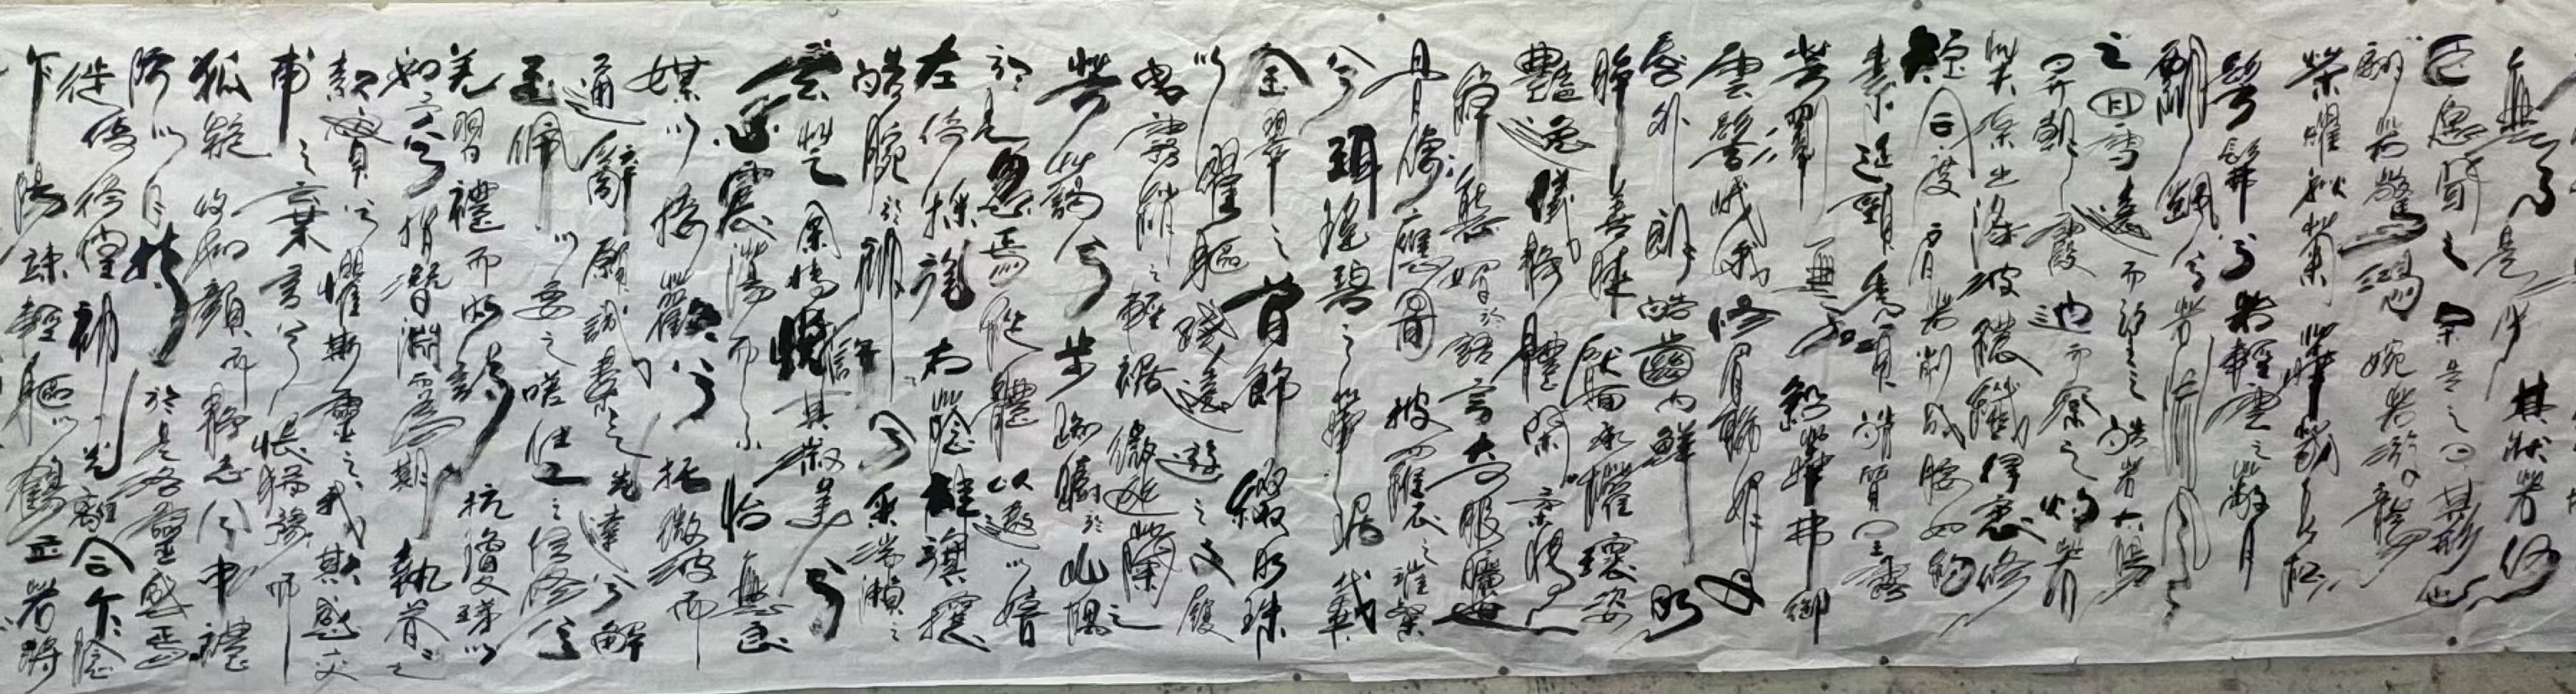 無乃是乎其狀若何
臣願聞之余告之曰其形也
翩若驚鴻婉若游龍
榮曜秋菊華茂春松
髣髴兮若輕雲之蔽月
飄颻兮若流風
之迴雪遠而望之皎若太陽
昇朝霞迫而察之灼若
芙蕖出淥波穠纖得衷修
短合度肩若削成腰如約
素延頸秀項皓質呈露
芳澤無加鉛華弗御
雲髻峨峨修眉聯娟丹
唇外朗皓齒內鮮明
眸善睞靨輔承權瓌姿
豔逸儀靜體閑柔情
綽態媚於語言奇服曠世
骨像應圖披羅衣之璀粲
兮珥瑤碧之華琚戴
金翠之首飾綴明珠
以耀軀踐遠遊之文履
曳霧綃之輕裾微幽蘭之
芳藹兮步踟躕於山隅
於是忽焉縱體以遨以嬉
左倚採旄右蔭桂旗攘
皓腕於神滸兮采湍瀨之
玄芝余情悅其淑美兮
心震蕩而不怡無良
媒以接歡兮托微波而
通辭願誠素之先達兮解
玉佩以要之嗟佳人之信修兮
羌習禮而明詩抗瓊珶以
和予兮指潛淵而為期執眷眷之
款實兮懼斯靈之我欺感交
甫之棄言兮悵猶豫而
狐疑收和顏而靜志兮申禮
防以自持於是洛靈感焉
徙倚彷徨神光離合乍陰
乍陽竦輕軀以鶴立若將